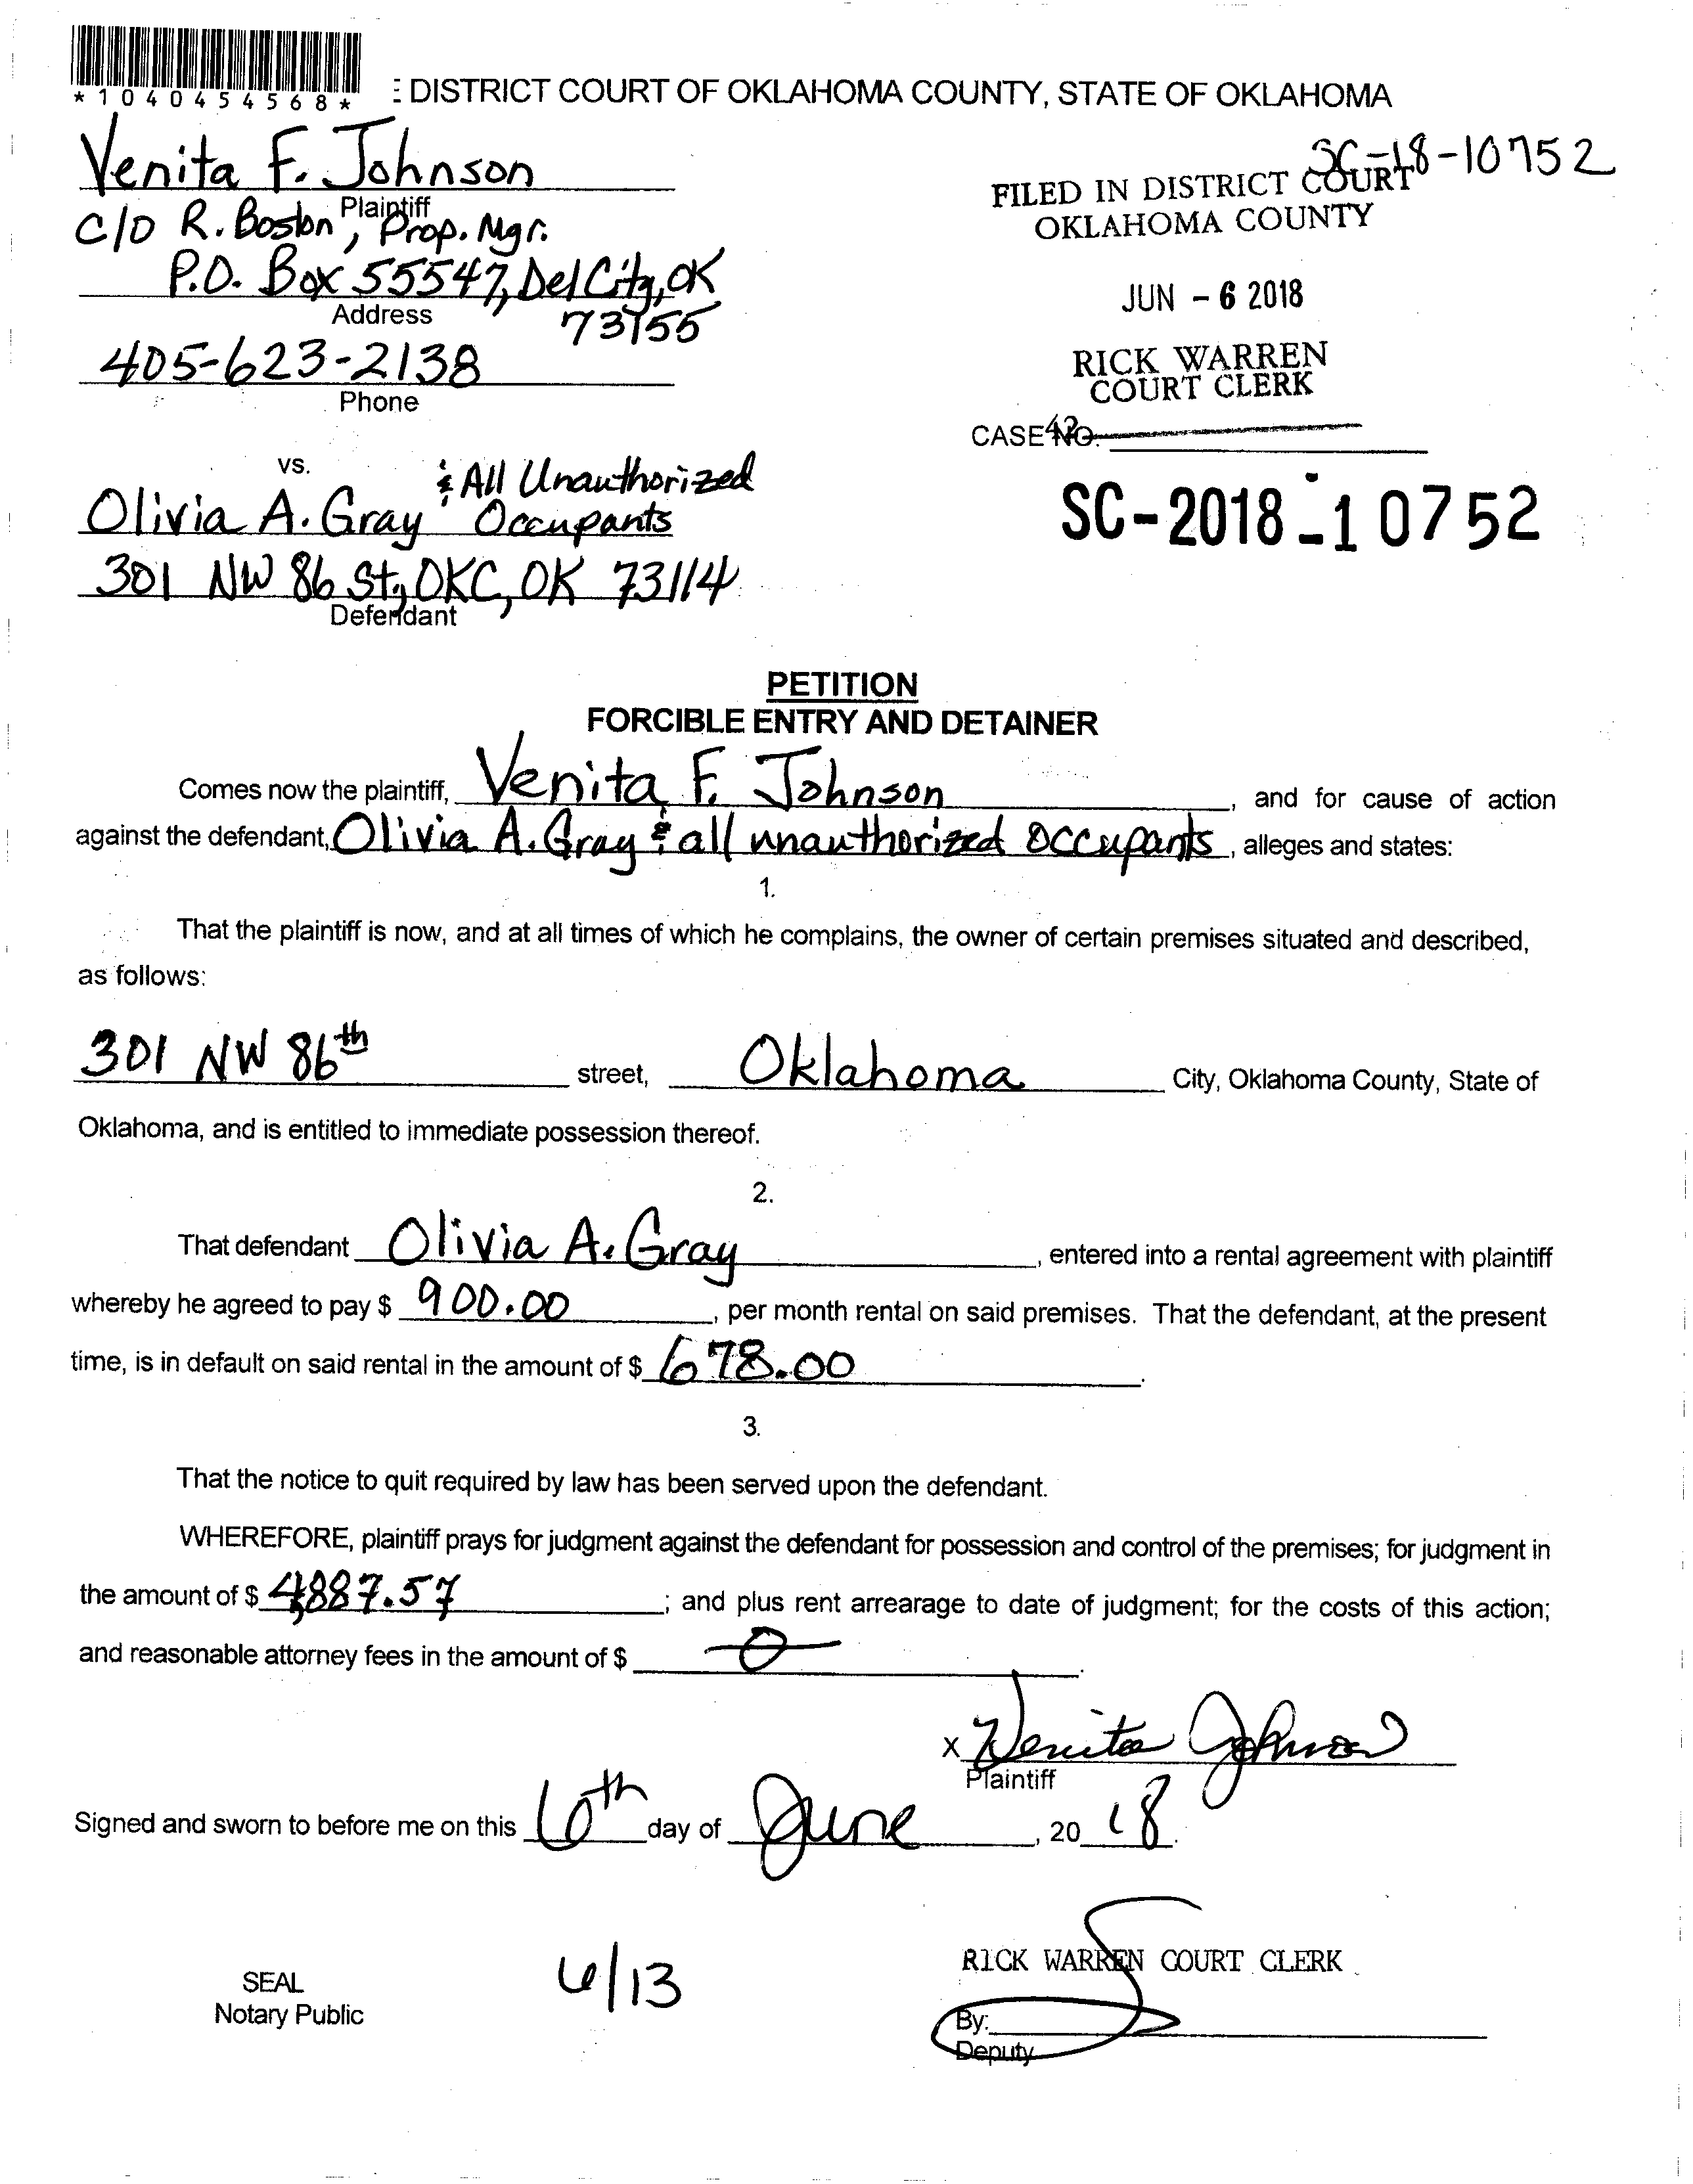 *1040454568*
DISTRICT COURT OF OKLAHOMA COUNTY, STATE OF OKLAHOMA
Venita F. Johnson
Plaintiff
C/O R. Boston, Prop. Mgr.
P.O. Box 55547, Del City, OK
Address
73155
405-623-2138
Phone
SC-18-10752
FILED IN DISTRICT COURT
OKLAHOMA COUNTY
JUN - 6 2018
RICK WARREN
COURT CLERK
CASE NO. 42
SC-2018-10752
vs.
Olivia A. Gray & All Unauthorized
Occupants
301 NW 86 St, OKC, OK 73114
Defendant
PETITION
FORCIBLE ENTRY AND DETAINER
Comes now the plaintiff, Venita F. Johnson, and for cause of action
against the defendant, Olivia A. Gray & all unauthorized occupants, alleges and states:
1.
That the plaintiff is now, and at all times of which he complains, the owner of certain premises situated and described,
as follows:
301 NW 86th street, Oklahoma City, Oklahoma County, State of
Oklahoma, and is entitled to immediate possession thereof.
2.
That defendant Olivia A. Gray, entered into a rental agreement with plaintiff
whereby he agreed to pay $ 900.00, per month rental on said premises. That the defendant, at the present
time, is in default on said rental in the amount of $ 678.00.
3.
That the notice to quit required by law has been served upon the defendant.
WHEREFORE, plaintiff prays for judgment against the defendant for possession and control of the premises; for judgment in
the amount of $ 4,887.57; and plus rent arrearage to date of judgment; for the costs of this action;
and reasonable attorney fees in the amount of $ 0.
x Venita Johnson
Plaintiff
Signed and sworn to before me on this 6th day of June, 2018.
SEAL
Notary Public
6/13
RICK WARREN COURT CLERK
By:
Deputy